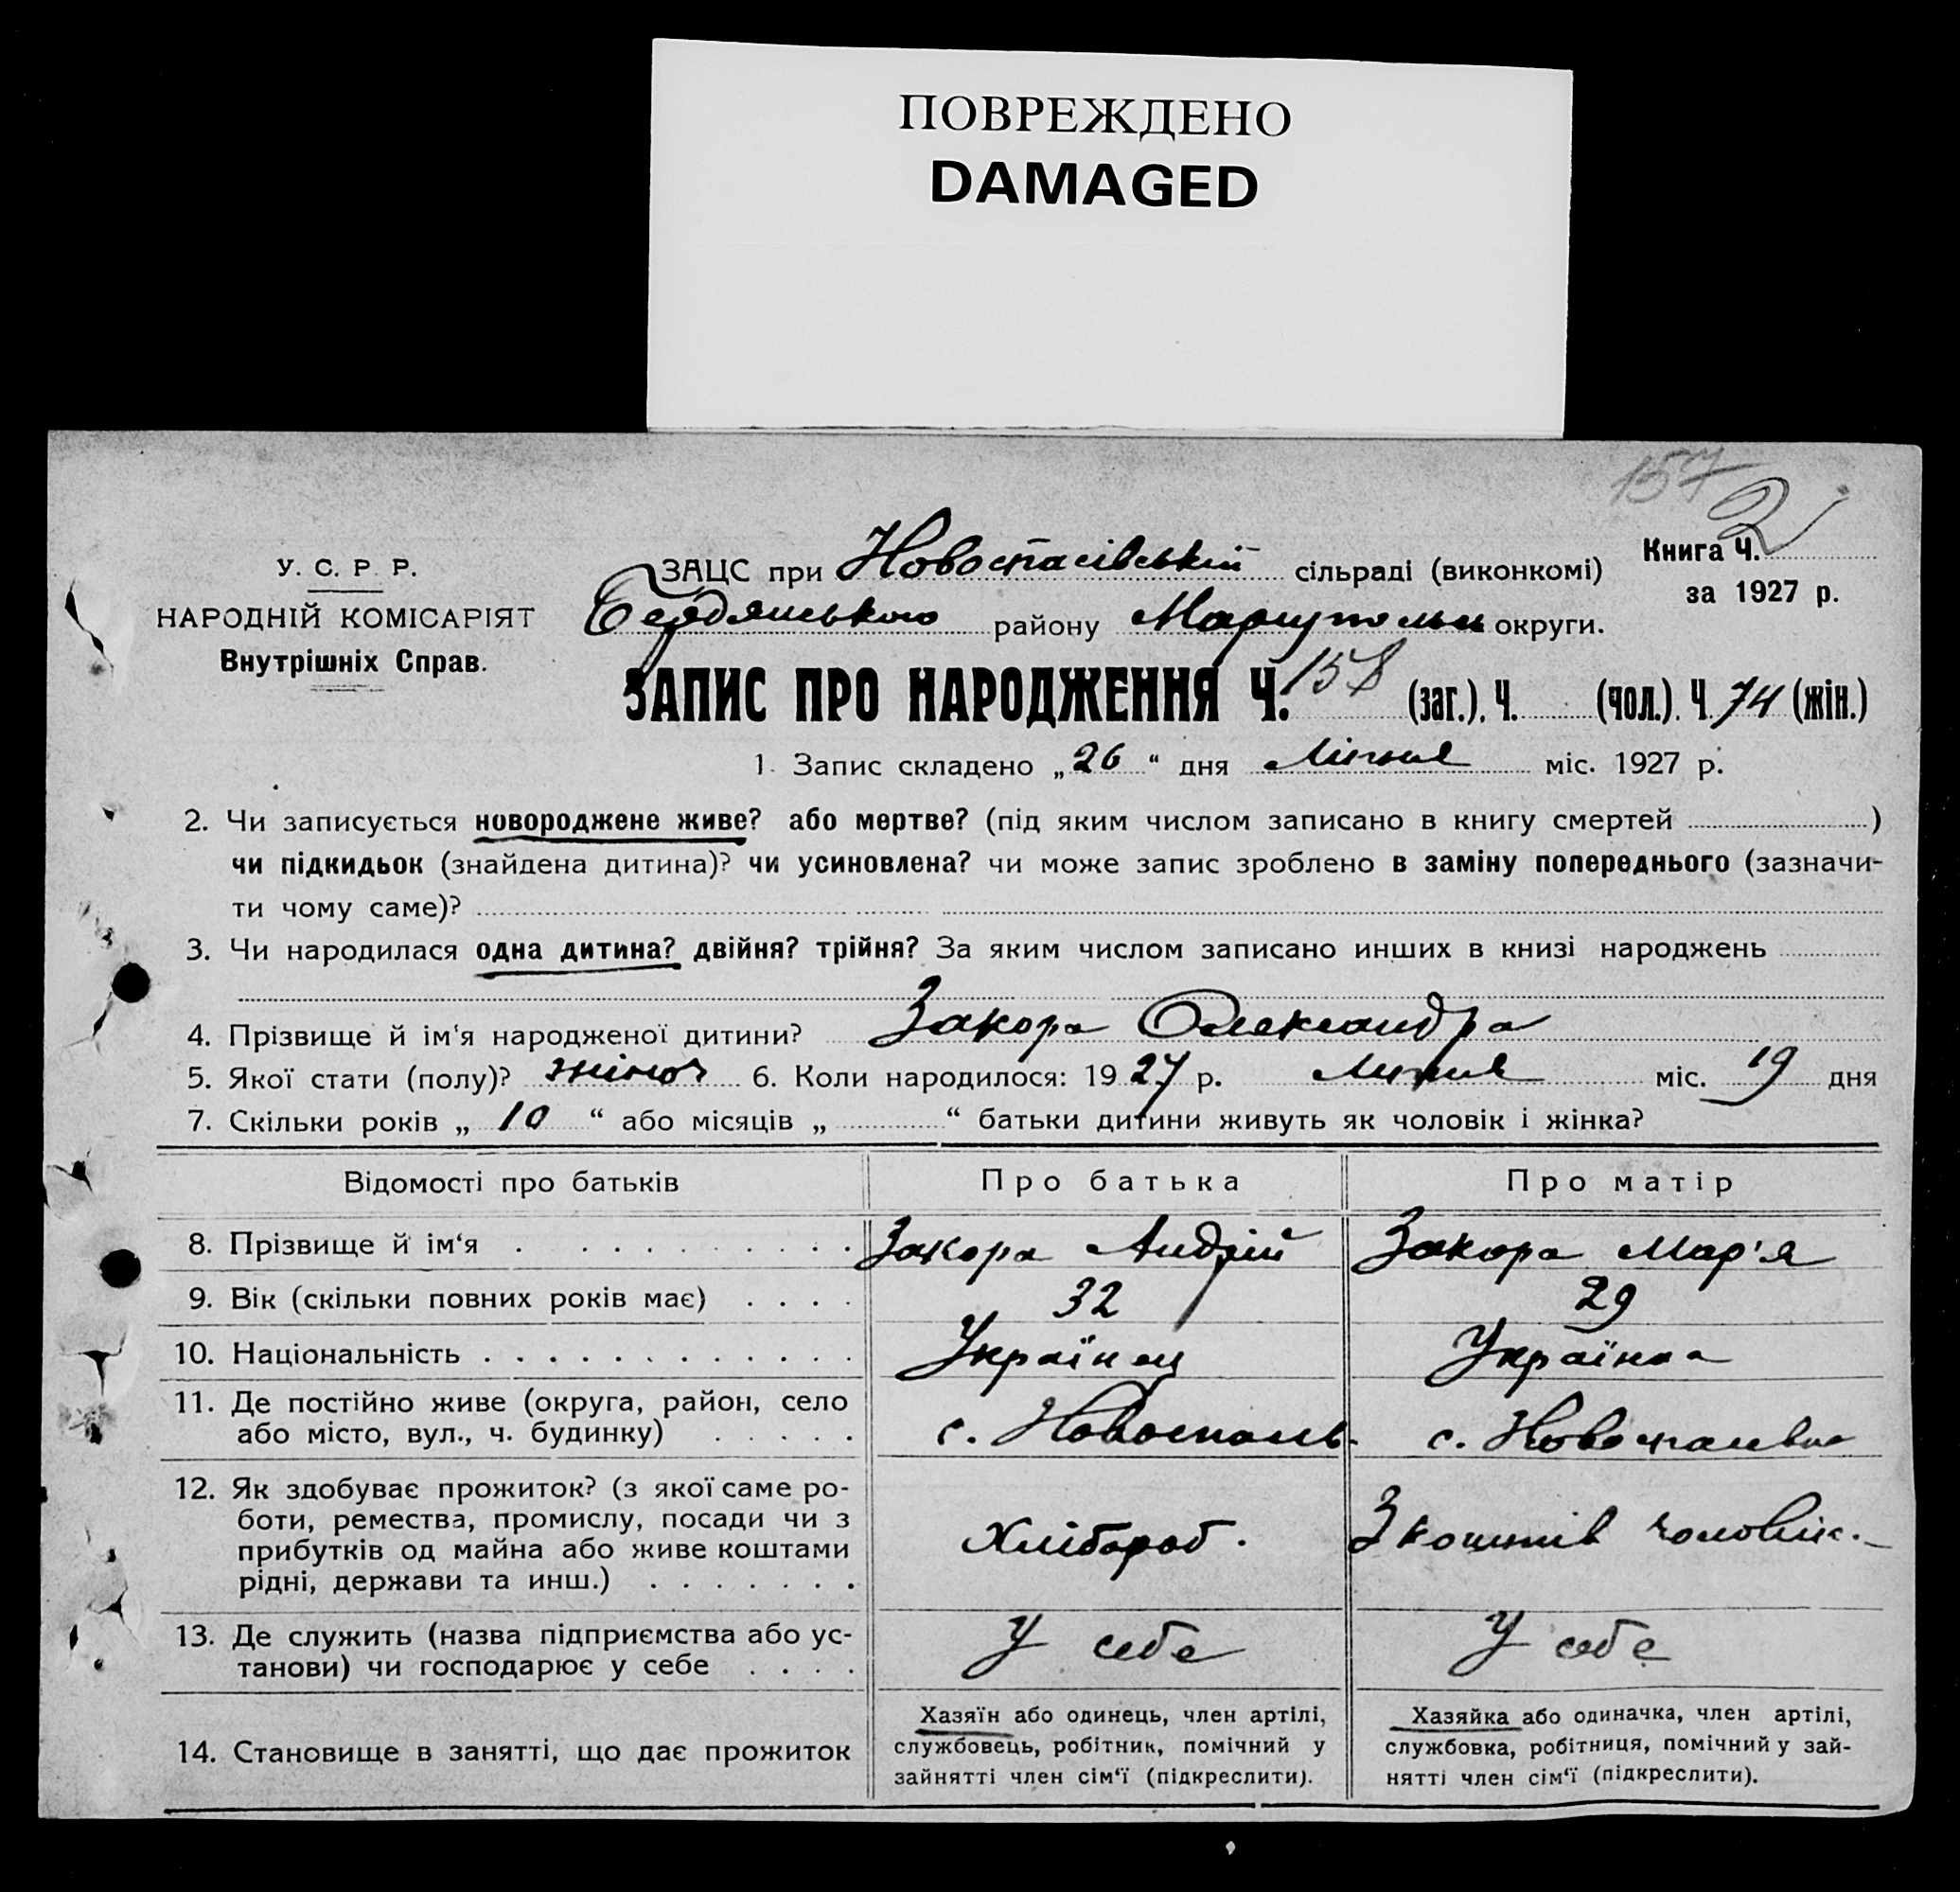 ПОВРЕЖДЕНО
DAMAGED
157
У. С. Р. Р.
НАРОДНІЙ КОМІСАРІЯТ
Внутрішніх Справ.
ЗАЦС при Новоспасівській сільраді (виконкомі)
Бердянського району Маріупольськ округи.
Книга Ч. 2
за 1927 р.
ЗАПИС ПРО НАРОДЖЕННЯ Ч. 158 (заг.). Ч. (чол.). Ч. 74 (жін.)
1. Запис складено „26“ дня Липня міс. 1927 р.
2. Чи записується новороджене живе? або мертве? (під яким числом записано в книгу смертей )
чи підкидьок (знайдена дитина)? чи усиновлена? чи може запис зроблено в заміну попереднього (зазначи-
ти чому саме)?
3. Чи народилася одна дитина? двійня? трійня? За яким числом записано инших в книзі народжень
4. Прізвище й ім‘я народженої дитини? Закора Олександра
5. Якої стати (полу)? жіноч 6. Коли народилося: 1927 р. Липня міс. 19 дня
7. Скільки років „ 10 “ або місяців „ “ батьки дитини живуть як чоловік і жінка?
Відомості про батьків Про батька Про матір
8. Прізвище й ім‘я Закора Андрій Закора Мар'я
9. Вік (скільки повних років має) 32 29
10. Національність Українец Українка
11. Де постійно живе (округа, район, село
або місто, вул., ч. будинку) с. Новоспасів. с. Новоспасівка
12. Як здобуває прожиток? (з якої саме ро-
боти, ремества, промислу, посади чи з
прибутків од майна або живе коштами
рідні, держави та инш.) Хлібороб. З коштів чоловік.
13. Де служить (назва підприємства або ус-
танови) чи господарює у себе У себе У себе
14. Становище в занятті, що дає прожиток
Хазяїн або одинець, член артілі,
службовець, робітник, помічний у
зайнятті член сім‘ї (підкреслити).
Хазяйка або одиначка, член артілі,
службовка, робітниця, помічний у зай-
нятті член сім‘ї (підкреслити).